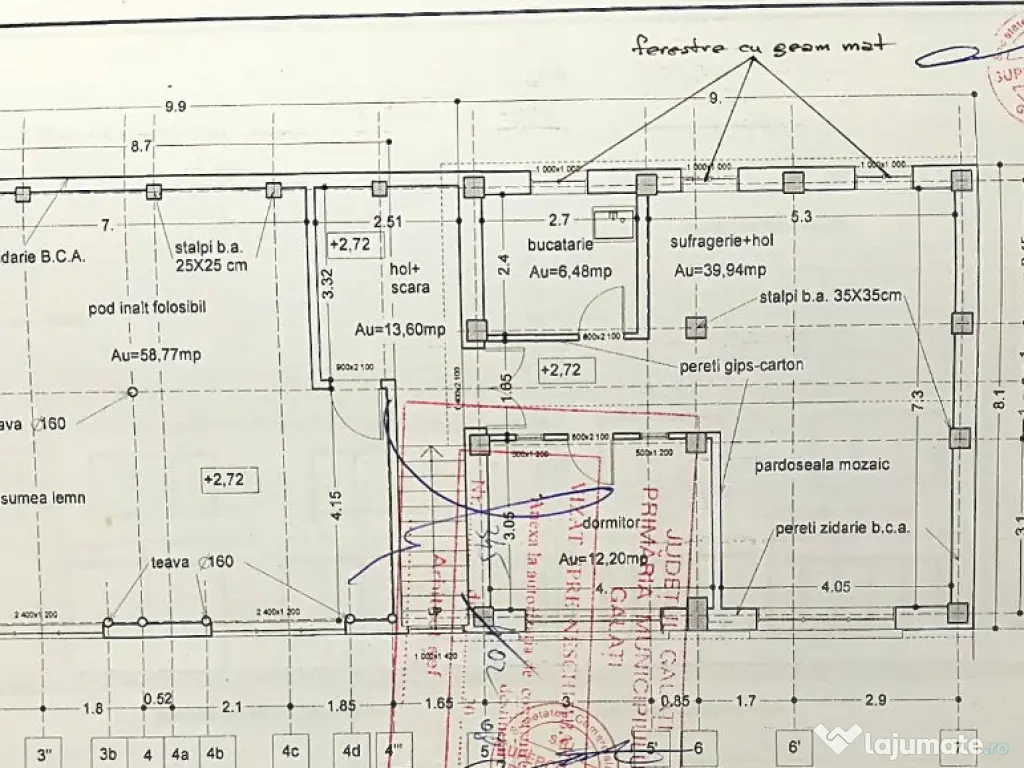 ferestre cu geam mat
9.9
9.
8.7
1 000x1 000
1 000x1 000
1 000x1 000
7.
2.51
2.7
5.3
stalpi b.a.
25X25 cm
+2,72
bucatarie
Au=6,48mp
sufragerie+hol
Au=39,94mp
darie B.C.A.
3.32
hol+
scara
2.4
stalpi b.a. 35X35cm
pod inalt folosibil
Au=13,60mp
800x2 100
Au=58,77mp
900x2 100
+2,72
pereti gips-carton
1.65
7.3
8.1
ava ∅160
800x2 100
500x1 200
500x1 200
+2,72
pardoseala mozaic
sumea lemn
4.15
3.05
dormitor
Au=12,20mp
pereti zidarie b.c.a.
3.1
teava ∅160
4.
4.05
2 400x1 200
2 400x1 200
1 000x1 420
JUDETUL GALATI
PRIMARIA MUNICIPIULUI
GALATI
Anexa la
Nr.
345
1.8
0.52
2.1
1.85
1.65
3
0.85
1.7
2.9
3"
3b
4
4a
4b
4c
4d
4'''
6
5
5'
6
6'
lajumate.ro